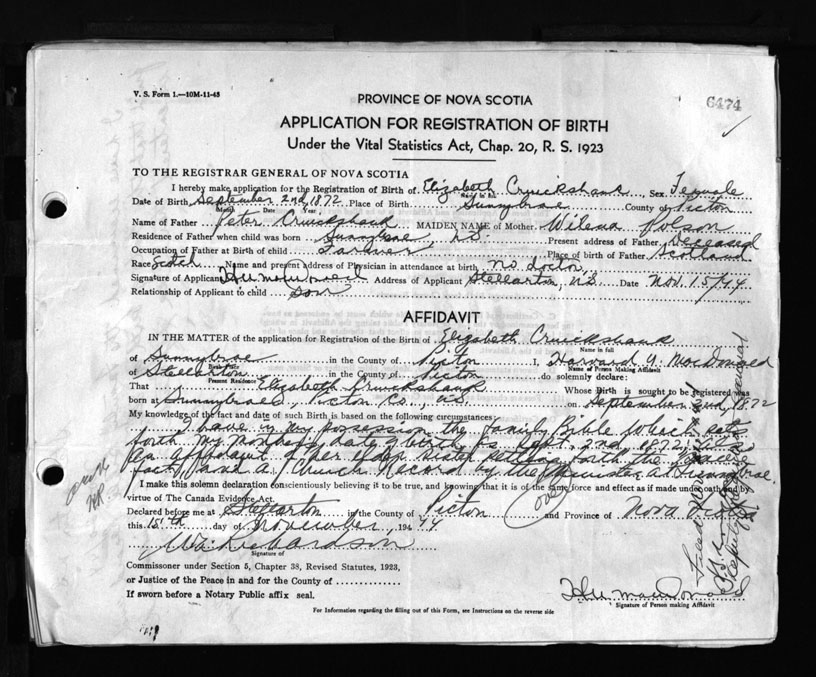 V. S. Form 1.—10M-11-45
6474
PROVINCE OF NOVA SCOTIA
APPLICATION FOR REGISTRATION OF BIRTH
Under the Vital Statistics Act, Chap. 20, R. S. 1923
TO THE REGISTRAR GENERAL OF NOVA SCOTIA
I hereby make application for the Registration of Birth of Elizabeth Cruickshank Sex Female
Name in full
Date of Birth September 2nd, 1872 Place of Birth Sunnybrae County of Pictou
Month Date Year
Name of Father Peter Cruickshank MAIDEN NAME of Mother Wilena Polson
Residence of Father when child was born Sunnybrae, N.S. Present address of Father Deceased
Occupation of Father at Birth of child Farmer Place of birth of Father Scotland
Race Scotch Name and present address of Physician in attendance at birth no doctor
Signature of Applicant Address of Applicant Stellarton, N.S. Date Nov. 15/44
Relationship of Applicant to child Son
AFFIDAVIT
IN THE MATTER of the application for Registration of the Birth of Elizabeth Cruickshank
Name in full
of Sunnybrae in the County of Pictou I, Harvard Y. MacDonald
Birth Place Name of Person Making Affidavit
of Stellarton in the County of Pictou do solemnly declare:
Present Residence
That Elizabeth Cruickshank Whose Birth is sought to be registered was
born at Sunnybrae, Pictou Co., N.S. on September 2nd, 1872
My knowledge of the fact and date of such Birth is based on the following circumstances:
I have in my possession the family Bible which sets
forth my mothers date of birth as Sept. 2nd 1872,
an affidavit of her elder sister setting forth the
fact, and a Church Record by the Minister at Sunnybrae.
I make this solemn declaration conscientiously believing it to be true, and knowing that it is of the same force and effect as if made under oath and by
virtue of The Canada Evidence Act.
Declared before me at Stellarton in the County of Pictou and Province of Nova Scotia
(over)
this 15th day of November, 1944
Richardson
Signature of
Commissioner under Section 5, Chapter 38, Revised Statutes, 1923,
or Justice of the Peace in and for the County of
If sworn before a Notary Public affix seal.
Signature of Person making Affidavit
For Information regarding the filling out of this Form, see Instructions on the reverse side